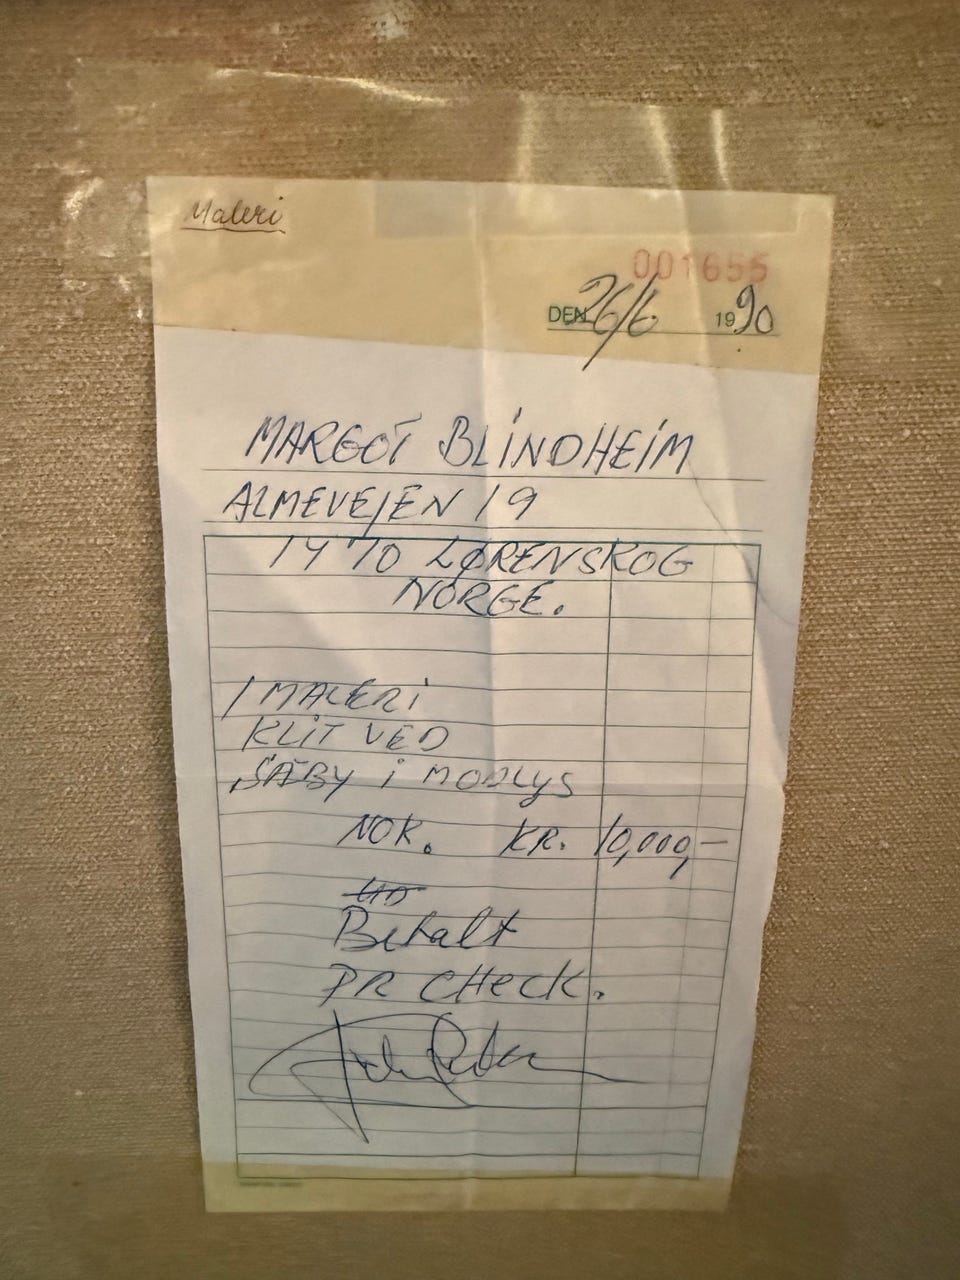 Maleri
001655
DEN 26/6 1990
MARGOT BLINDHEIM
ALMEVEJEN 19
1470 LØRENSKOG
NORGE.
1 MALERI
KLIT VED
SÆBY I MODLYS
NOK. KR. 10,000,-
Betalt
PR CHECK.